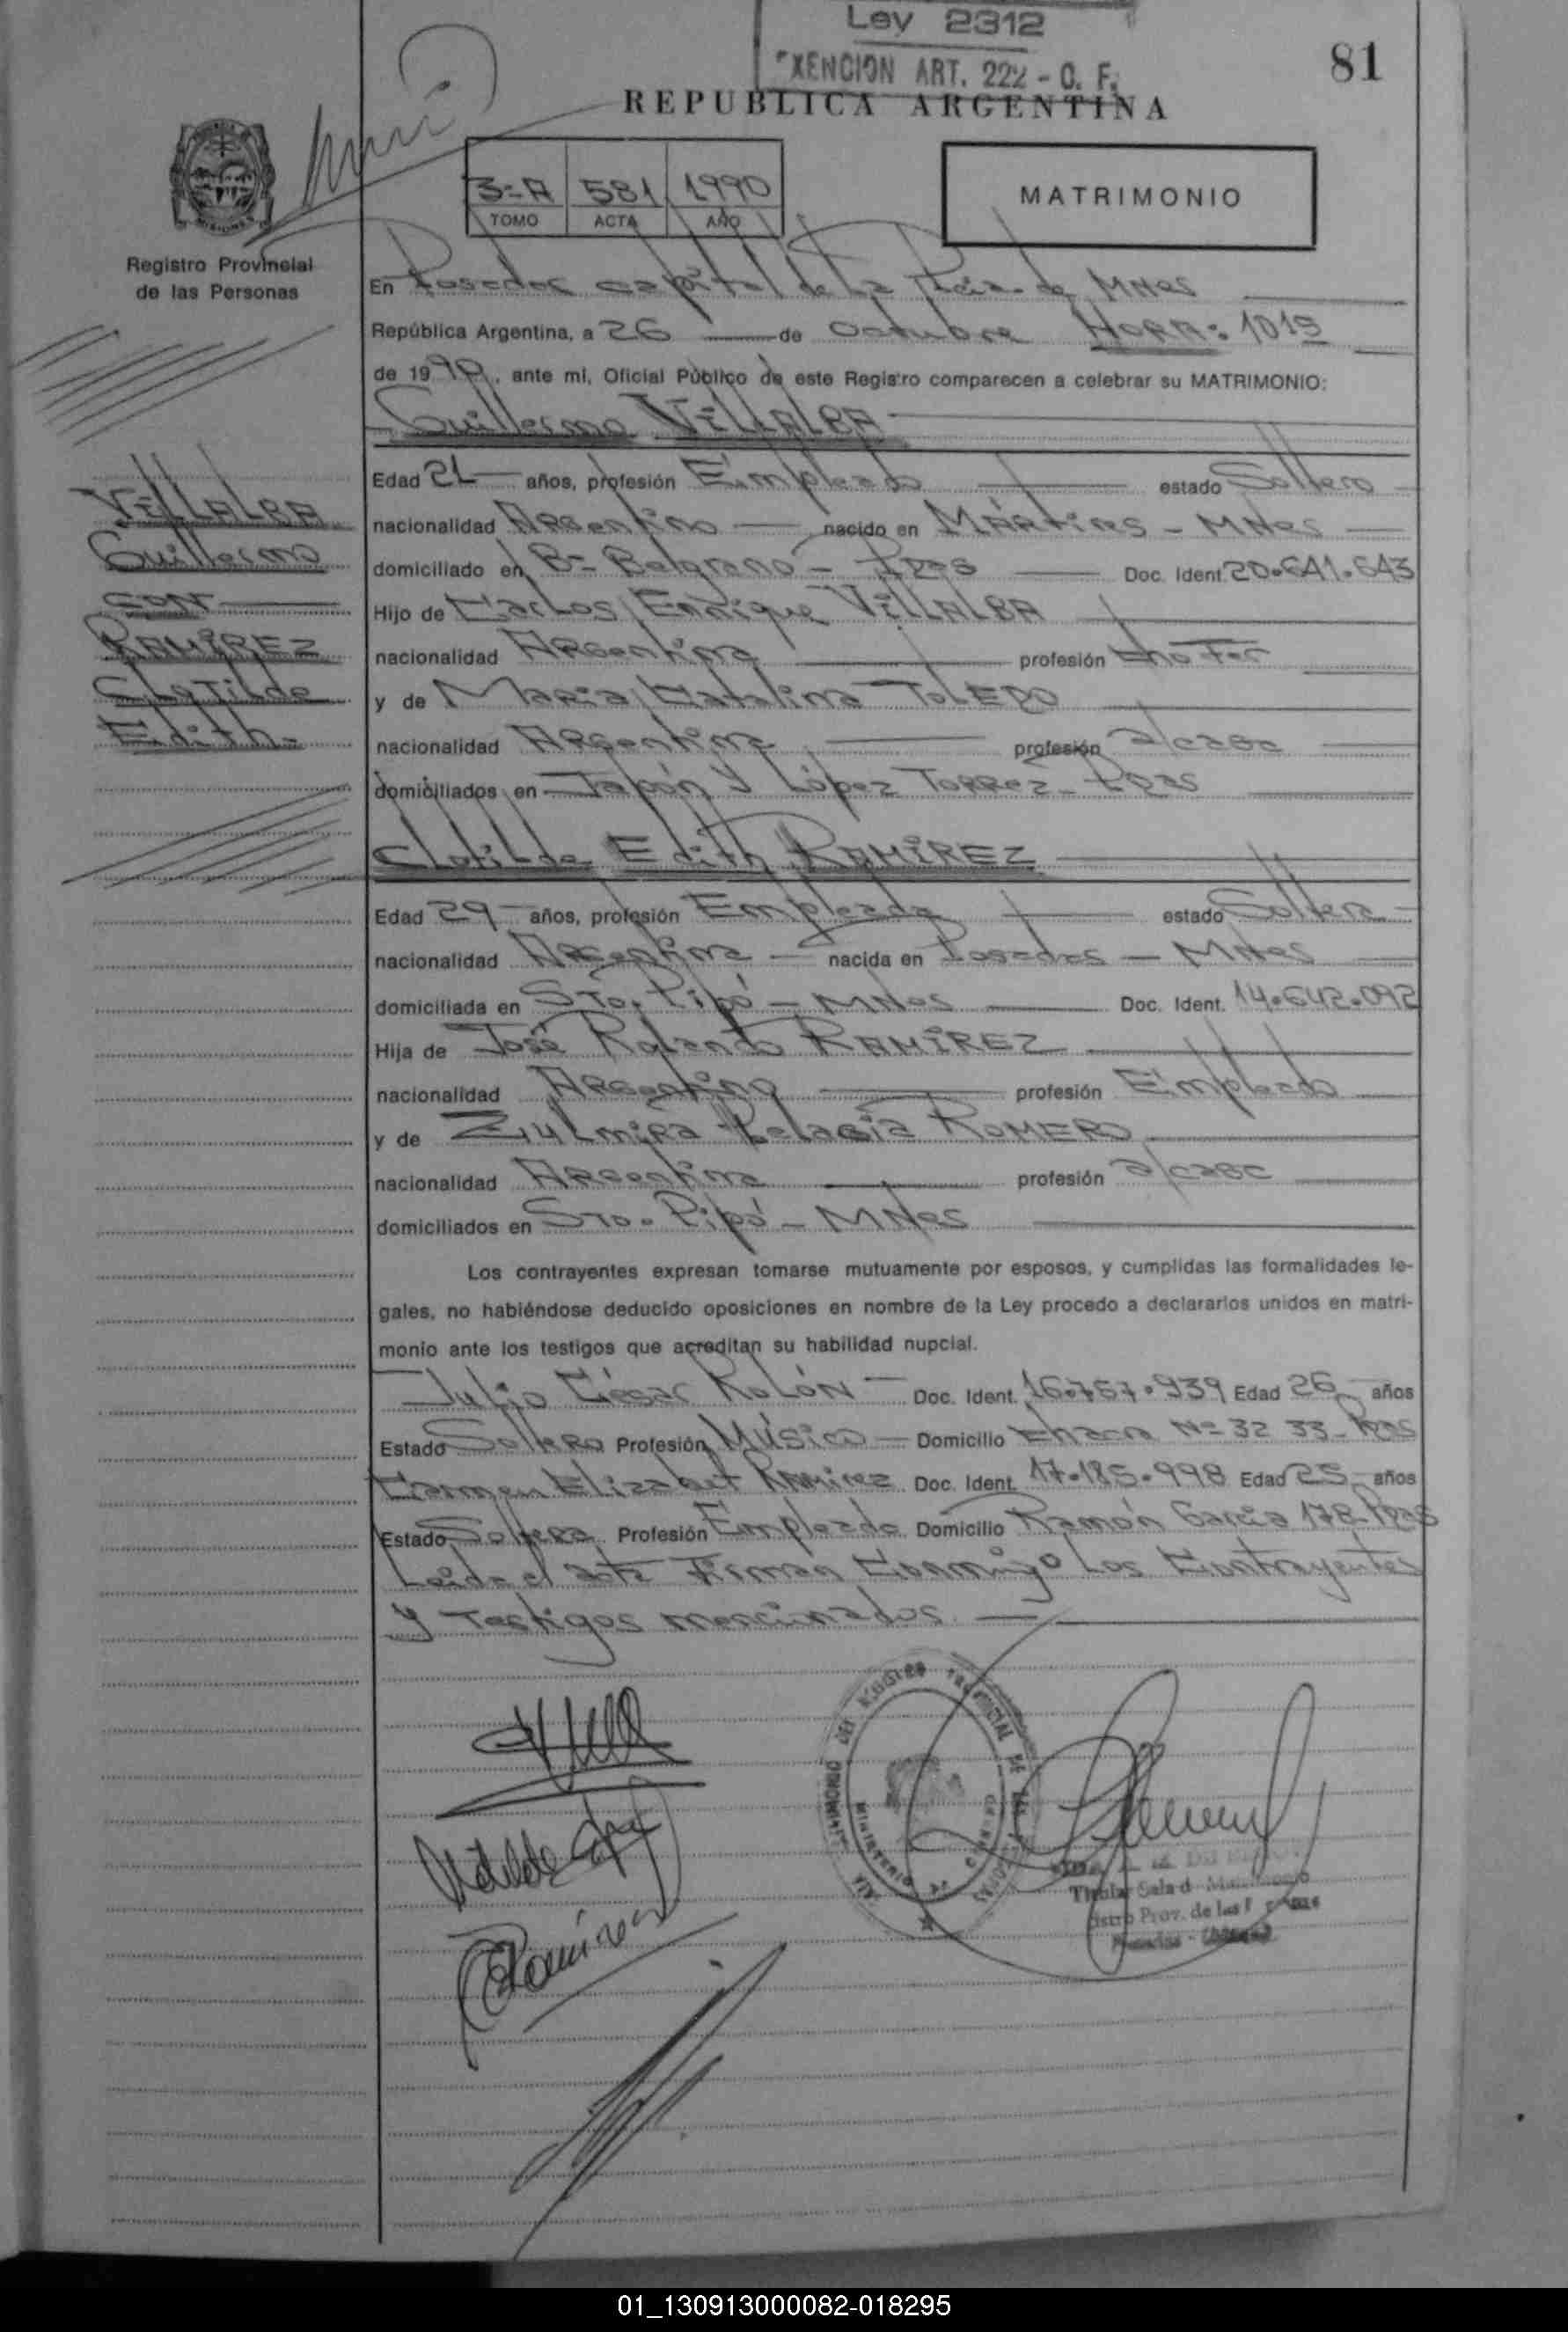 Ley 2312
EXENCION ART. 222 - C. F.
81
REPUBLICA ARGENTINA
3=A 581 1990
TOMO ACTA AÑO
MATRIMONIO
Registro Provincial
de las Personas
En Posadas capital de la Pcia. de Mnes
República Argentina, a 26 de octubre HORA: 1015
de 1990, ante mí, Oficial Público de este Registro comparecen a celebrar su MATRIMONIO:
Guillermo VILLALBA
Edad 21 años, profesión Empleado estado Soltero
nacionalidad Argentino nacido en Mártires - Mnes
domiciliado en Bº Belgrano - Pdas Doc. Ident. 20.641.643
Hijo de Carlos Enrique VILLALBA
nacionalidad Argentina profesión Chofer
y de María Catalina TOLEDO
nacionalidad Argentina profesión a/casa
domiciliados en Japón y López Torres - Pdas
Clotilde Edith RAMIREZ
Edad 29 años, profesión Empleada estado Soltera
nacionalidad Argentina nacida en Posadas - Mnes
domiciliada en Sto. Pipó - Mnes Doc. Ident. 14.642.092
Hija de José Rolando RAMIREZ
nacionalidad Argentino profesión Empleado
y de Zulmira Pelagia ROMERO
nacionalidad Argentina profesión a/casa
domiciliados en Sto. Pipó - Mnes
VILLALBA
Guillermo
con
RAMIREZ
Clotilde
Edith
Los contrayentes expresan tomarse mutuamente por esposos, y cumplidas las formalidades le-
gales, no habiéndose deducido oposiciones en nombre de la Ley procedo a declararlos unidos en matri-
monio ante los testigos que acreditan su habilidad nupcial.
Julio César Rolón Doc. Ident. 16.757.939 Edad 26 años
Estado Soltero Profesión Músico Domicilio Chacra Nº 32 33 - Pdas
Carmen Elizabet Ramirez Doc. Ident. 17.185.998 Edad 25 años
Estado Soltera Profesión Empleada Domicilio Ramón García 178 Pdas
Leida el acta firman conmigo los contrayentes
y testigos mencionados
Ramirez
Titular Sala d
Prov. de las
01_130913000082-018295